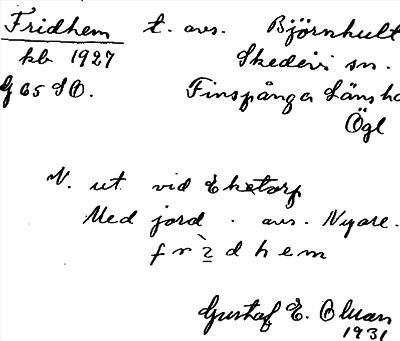 Fridhem t. avs. Björnhult
kb 1927 Skedevi sn.
G 65 SO. Finspånga Länsho
Ögl
N. ut vid Eketorp
Med jord. avs. Nyare.
frìdhem
Gustaf E. Olman
1931